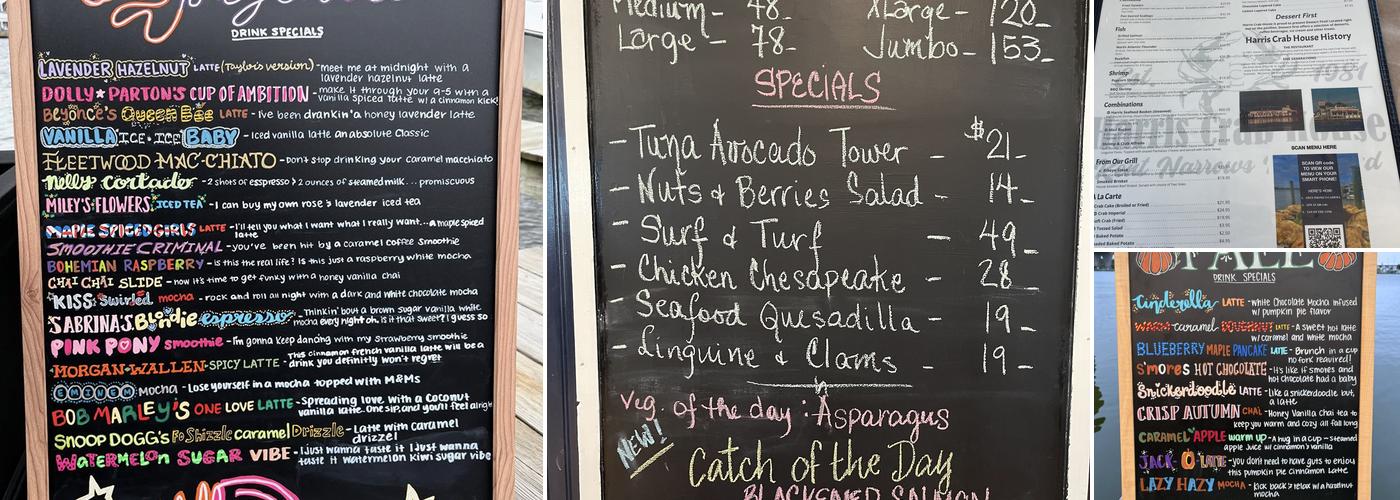 DRINK SPECIALS
LAVENDER HAZELNUT LATTE (Taylor's version) - meet me at midnight with a
lavender hazelnut latte
DOLLY★PARTON'S CUP OF AMBITION - make it through your 9-5 with a
vanilla spiced latte w/ a cinnamon kick!
BEYONCE'S Queen Bee LATTE - Ive been drankin' a honey lavender latte
VANILLA ICE·ICE BABY - Iced vanilla latte an absolute Classic
FLEETWOOD MAC-CHIATO - Don't stop drinking your caramel macchiato
nelly cortado - 2 shots of esspresso & 2 ounces of steamed milk... promiscuous
MILEY'S FLOWERS ICED TEA - I can buy my own rose & lavender iced tea
MAPLE SPICED GIRLS LATTE - I'll tell you what I want what I really want...a maple spiced
latte
SMOOTHIE CRIMINAL - you've been hit by a caramel coffee smoothie
BOHEMIAN RASPBERRY - is this the real life? Is this just a raspberry white mocha
CHAI CHAI SLIDE - now it's time to get funky with a honey vanilla chai
KISS Swirled mocha - rock and roll all night with a dark and white chocolate mocha
SABRINA'S Blondie espresso - Thinkin' bout a brown sugar vanilla white
mocha every night oh, is it that sweet? I guess so
PINK PONY smoothie - I'm gonna keep dancing with my strawberry smoothie
MORGAN WALLEN SPICY LATTE - This cinnamon french vanilla latte will be a
drink you definitly won't regret
EMINEM MOCHA - Lose yourself in a mocha topped with M&Ms
BOB MARLEY'S ONE LOVE LATTE - Spreading love with a Coconut
vanilla latte. One sip, and you'll feel alright
SNOOP DOGG's Fo Shizzle caramel Drizzle - Latte with caramel
drizzel
WATERMELON SUGAR VIBE - I Just wanna taste it I Just wanna
taste it watermelon kiwi sugar vibe
Medium - 48-
XLarge - 120-
Large - 78-
Jumbo - 153-
SPECIALS
- Tuna Avocado Tower - $21-
- Nuts & Berries Salad - 14-
- Surf & Turf - 49-
- Chicken Chesapeake - 28-
- Seafood Quesadilla - 19-
- Linguine & Clams - 19-
Veg. of the day: Asparagus
NEW!
Catch of the Day
BLACKENED SALMON
Fish
Shrimp
Combinations
From Our Grill
A La Carte
Dessert First
Harris Crab House History
THE RESTAURANT
1981
Harris Crab House
SCAN MENU HERE
SCAN QR code
TO VIEW OUR
MENU ON YOUR
SMART PHONE!
FALL
DRINK SPECIALS
Cinderella LATTE - white Chocolate Mocha infused
w/ pumpkin pie flavor
WARM caramel DOUGHNUT LATTE - A sweet hot latte
w/ caramel and white mocha
BLUEBERRY MAPLE PANCAKE LATTE - Brunch in a cup
no fork reauired!
S'mores HOT CHOCOLATE - It's like if s'mores and
hot chocolate had a baby
Snickerdoodle LATTE - like a snickerdoodle but,
a latte
CRISP AUTUMN CHAI - Honey Vanilla Chai tea to
keep you warm and cozy all fall long
CARAMEL APPLE warm up - A hug in a cup - steamed
apple juice w/ cinnamon & vanilla
JACK-O-LATTE - you don't need to have guts to enjoy
this pumpkin pie cinnamon Latte
LAZY HAZY MOCHA - Kick back & relax w/ a hazelnut
mocha